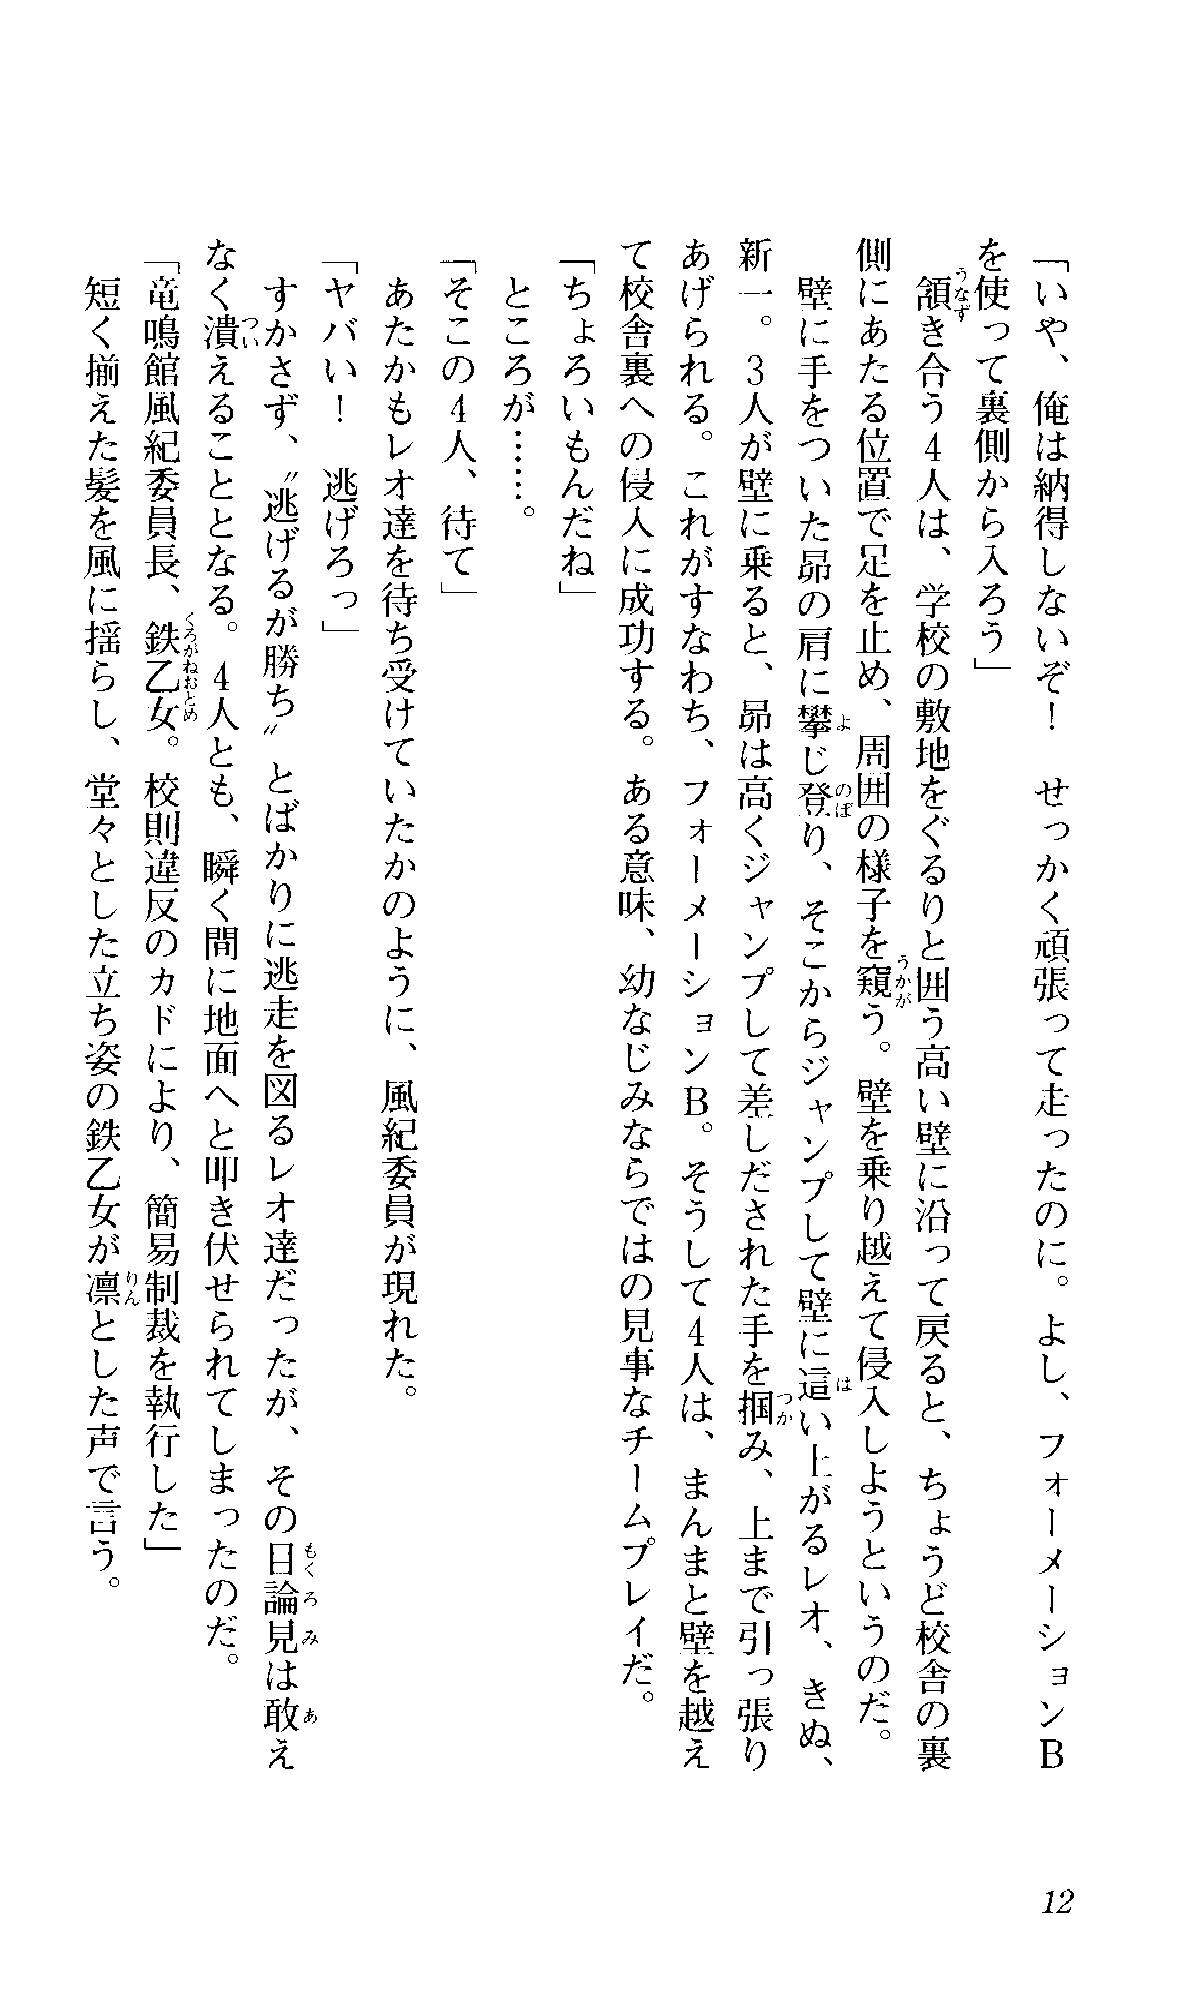 「いや、俺は納得しないぞ！　せっかく頑張って走ったのに。よし、フォーメーションB
を使って裏側から入ろう」
　頷き合う4人は、学校の敷地をぐるりと囲う高い壁に沿って戻ると、ちょうど校舎の裏
側にあたる位置で足を止め、周囲の様子を窺う。壁を乗り越えて侵入しようというのだ。
　壁に手をついた昴の肩に攀じ登り、そこからジャンプして壁に這い上がるレオ、きぬ、
新一。3人が壁に乗ると、昴は高くジャンプして差しだされた手を掴み、上まで引っ張り
あげられる。これがすなわち、フォーメーションB。そうして4人は、まんまと壁を越え
て校舎裏への侵入に成功する。ある意味、幼なじみならではの見事なチームプレイだ。
「ちょろいもんだね」
　ところが……。
「そこの4人、待て」
　あたかもレオ達を待ち受けていたかのように、風紀委員が現れた。
「ヤバい！　逃げろっ」
　すかさず、〝逃げるが勝ち〟とばかりに逃走を図るレオ達だったが、その目論見は敢え
なく潰えることとなる。4人とも、瞬く間に地面へと叩き伏せられてしまったのだ。
「竜鳴館風紀委員長、鉄乙女。校則違反のカドにより、簡易制裁を執行した」
　短く揃えた髪を風に揺らし、堂々とした立ち姿の鉄乙女が凛とした声で言う。
12